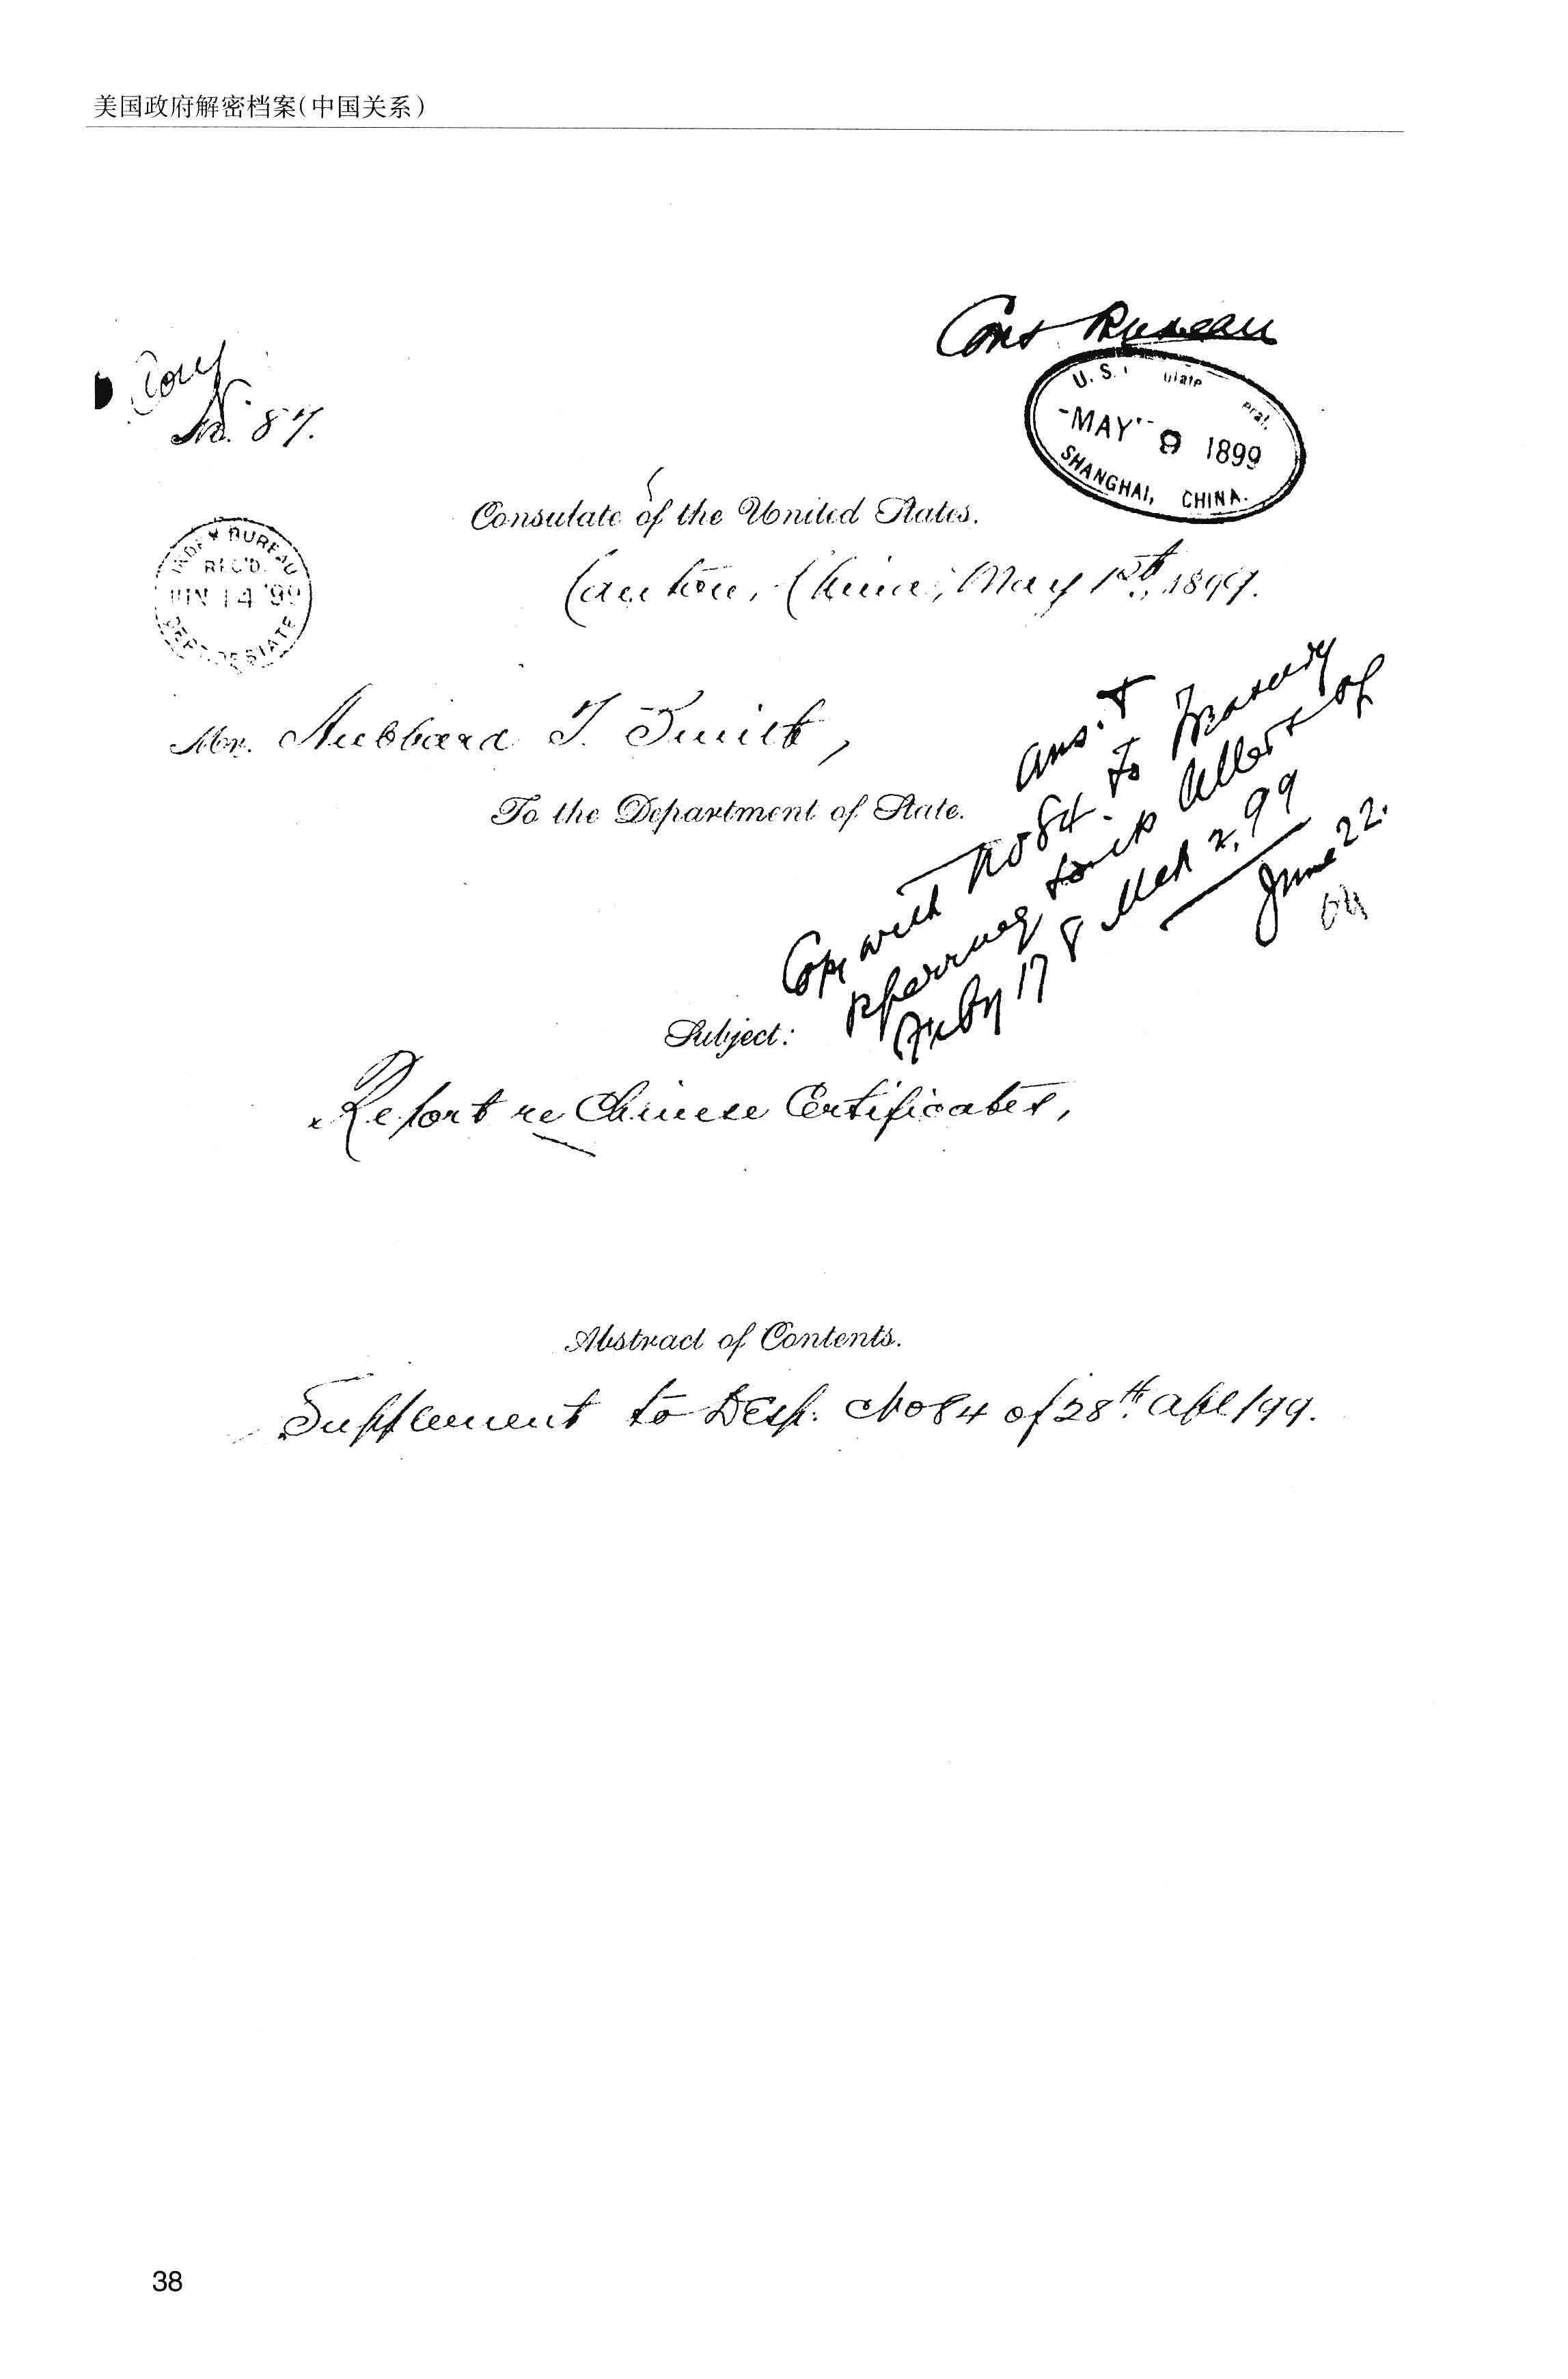 美国政府解密档案(中国关系)
Cons Bureau
Copy
No. 87.
U.S.
MAY 8 1899
SHANGHAI, CHINA.
Consulate of the United States.
Canton, China, May 1st, 1899.
INDEX BUREAU
REC'D.
JUN 14 '99
DEPT. OF STATE
Mr. Hubbard T. Smith,
To the Department of State.
Ans. &
Copy with No 84. To Treasury
referring to its letters of
Feby 17 & Mch 2, 99
June 22.
Subject:
Report re Chinese Certificates,
Abstract of Contents.
Supplement to Desp. No 84 of 28th Apl/99.
38